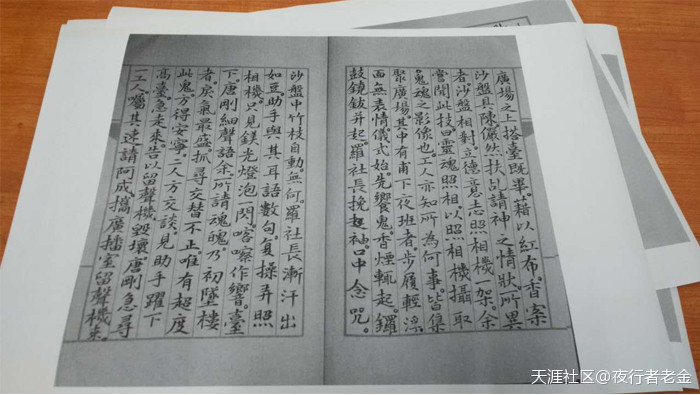 廣場之上搭臺既畢。藉以紅布。香案
沙盤具陳儼然扶乩請神之情狀所異
者沙盤相對立德意志照相機一架。余
嘗聞此技曰靈魂照相以照相機攝取
鬼魂之影像也工人亦知所為何事。皆集
聚中廣場其中有甫下夜班者。步履輕漂
面無表情儀式始。先饗鬼香煙輒起。鑼
鼓鐃鈸并起。羅社長挽起袖。口中念咒。
沙盤中竹枝自動。無何。羅社長漸汗出
如豆。助手與其耳語數句。复操弄照
相機。只見鎂光燈泡一閃。喀嚓作響。臺
下。唐剛細聲語余。所請魂魄。乃初墜樓
者。戾氣最盛抓尋交替不止。唯有超度
此鬼。方得安寧。二人方交談。見助手躍下
高臺。急走來。告以留聲機毀壞。唐剛急尋
一工人。囑其速請阿成。攜廣播室留聲機來。
天涯社区@夜行者老金